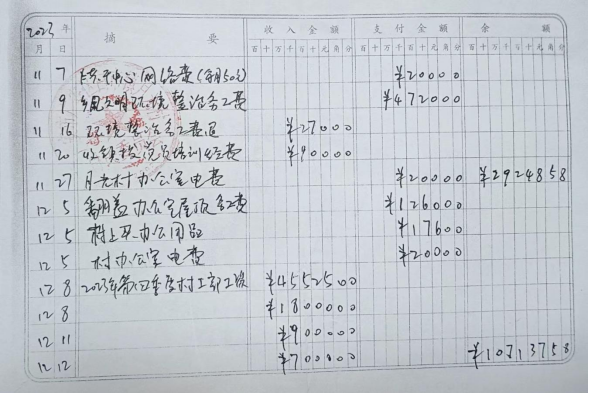 2023 摘 要 收入金额 支付金额 余额
月 日 百十万千百十元角分 百十万千百十元角分 百十万千百十元角分
11 7 中心网络费(每月50元) ¥20000
11 9 文明环境整治务工费 ¥472000
11 16 环境整治务工费 ¥27000
11 20 收 党员培训经费 ¥90000
11 27 月 村办公室电费 ¥20000 ¥2924858
12 5 翻盖办公室屋顶务工费 ¥126000
12 5 村上买办公用品 ¥17600
12 5 村办公室电费 ¥20000
12 8 2023年第四季度村干部工资 ¥4552500
12 8 ¥1800000
12 11 ¥900000
12 12 ¥700000 ¥10713758